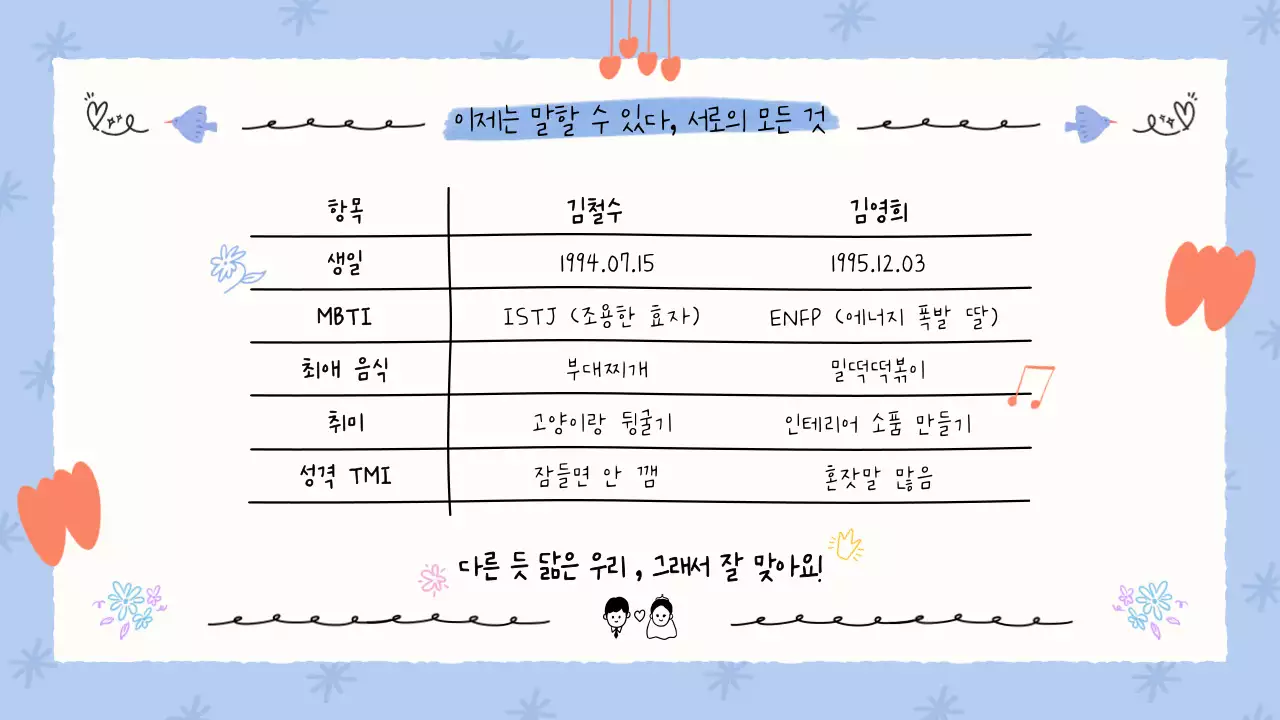 이제는 말할 수 있다, 서로의 모든 것
항목 김철수 김영희
생일 1994.07.15 1995.12.03
MBTI ISTJ (조용한 효자) ENFP (에너지 폭발 딸)
최애 음식 부대찌개 밀떡떡볶이
취미 고양이랑 뒹굴기 인테리어 소품 만들기
성격 TMI 잠들면 안 깸 혼잣말 많음
다른 듯 닮은 우리, 그래서 잘 맞아요!